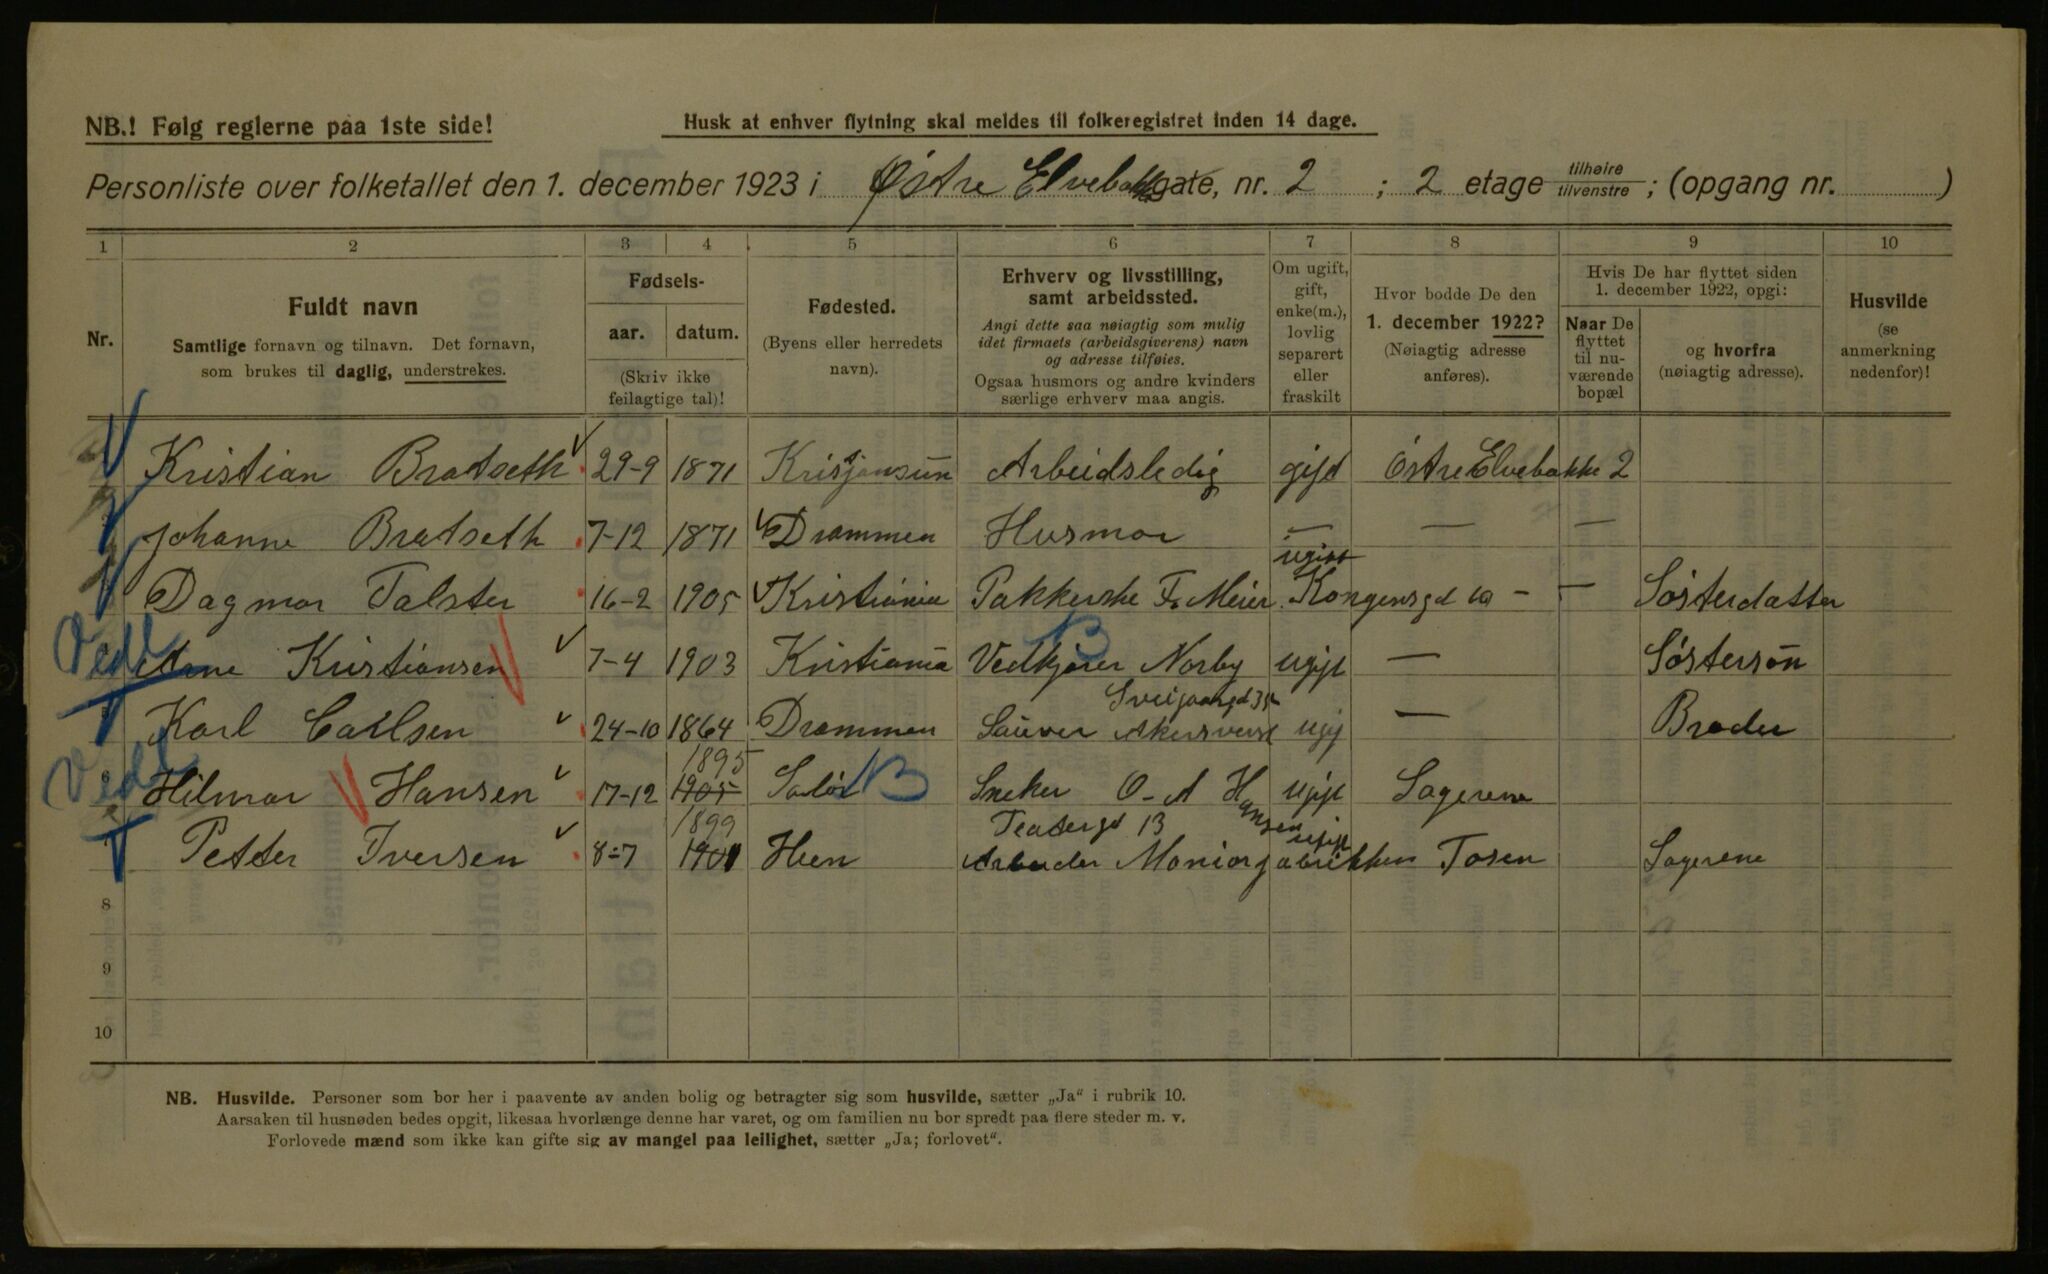 NB.! Følg reglerne paa 1ste side!
Husk at enhver flytning skal meldes til folkeregistret inden 14 dage.
Personliste over folketallet den 1. december 1923 i Østre Elvebakke gate, nr. 2 ; 2 etage tilhøire/tilvenstre ; (opgang nr. )
1 2 3 4 5 6 7 8 9 10
Nr.
Fuldt navn
Samtlige fornavn og tilnavn. Det fornavn,
som brukes til daglig, understrekes.
Fødsels-
aar. datum.
(Skriv ikke
feilagtige tal)!
Fødested.
(Byens eller herredets
navn).
Erhverv og livsstilling,
samt arbeidssted.
Angi dette saa nøiagtig som mulig
idet firmaets (arbeidsgiverens) navn
og adresse tilføies.
Ogsaa husmors og andre kvinders
særlige erhverv maa angis.
Om ugift,
gift,
enke(m.),
lovlig
separert
eller
fraskilt
Hvor bodde De den
1. december 1922?
(Nøiagtig adresse
anføres).
Hvis De har flyttet siden
1. december 1922, opgi:
Naar De
flyttet
til nu-
værende
bopæl
og hvorfra
(nøiagtig adresse).
Husvilde
(se
anmerkning
nedenfor)!
Kristian Bratseth 29-9 1871 Kristjansun Arbeidsledig gift Östre Elvebakke 2
Johanne Bratseth 7-12 1871 Drammen Husmor — — —
ugift
Dagmar Talster 16-2 1905 Kristiania Pakkerske F. Meier Kongensgd 10 — — Søsterdatter
Vedl B
Arne Kristiansen 7-4 1903 Kristiania Vedkjører Norby ugift — Søstersön
Sveigaargd 35
5 Karl Carlsen 24-10 1864 Drammen — Broder
Vedl 1895 B
6 Hilmar Hansen 17-12 1905 Solør Sneker O-A Hansen ugift Sagerene
1899 Teatergt 13 ugift
7 Petter Iversen 8-7 1901 Hen Arbeider Tosen Sagerene
8
9
10
NB. Husvilde. Personer som bor her i paavente av anden bolig og betragter sig som husvilde, sætter „Ja“ i rubrik 10.
Aarsaken til husnøden bedes opgit, likesaa hvorlænge denne har varet, og om familien nu bor spredt paa flere steder m. v.
Forlovede mænd som ikke kan gifte sig av mangel paa leilighet, sætter „Ja; forlovet“.